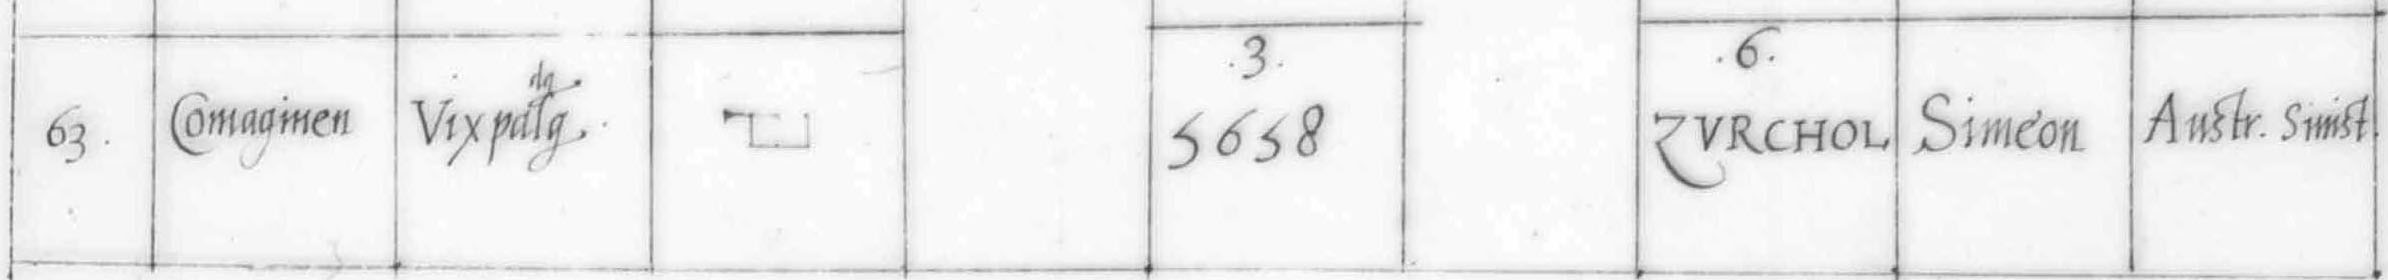 .3. .6.
63. Comaginen Vixpalg. 5658 ZVRCHOL Simeon Austr. sinist.